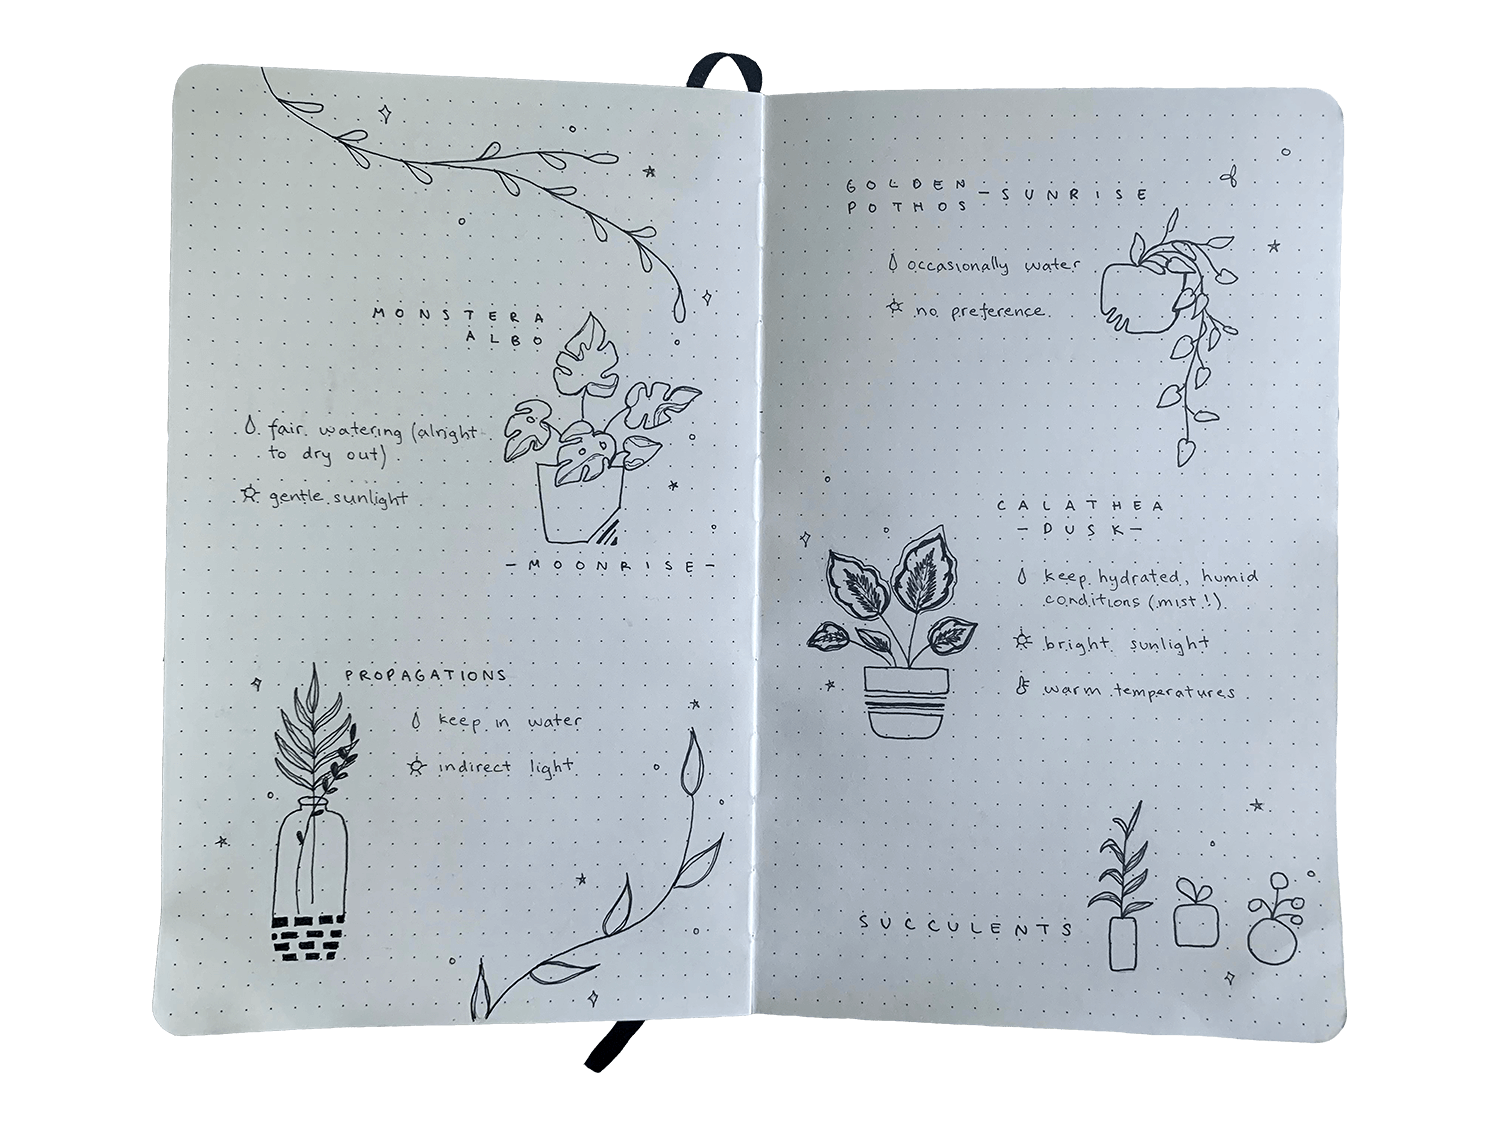 MONSTERA
ALBO
fair watering (alright
to dry out)
gentle sunlight
-MOONRISE-
PROPAGATIONS
keep in water
indirect light
GOLDEN
POTHOS - SUNRISE
occasionally water
no preference
CALATHEA
-DUSK-
keep hydrated, humid
conditions (mist!)
bright sunlight
warm temperatures
SUCCULENTS